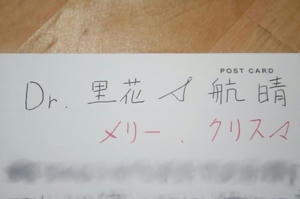 POST CARD
Dr. 里花 〆 航晴
メリー . クリスマ